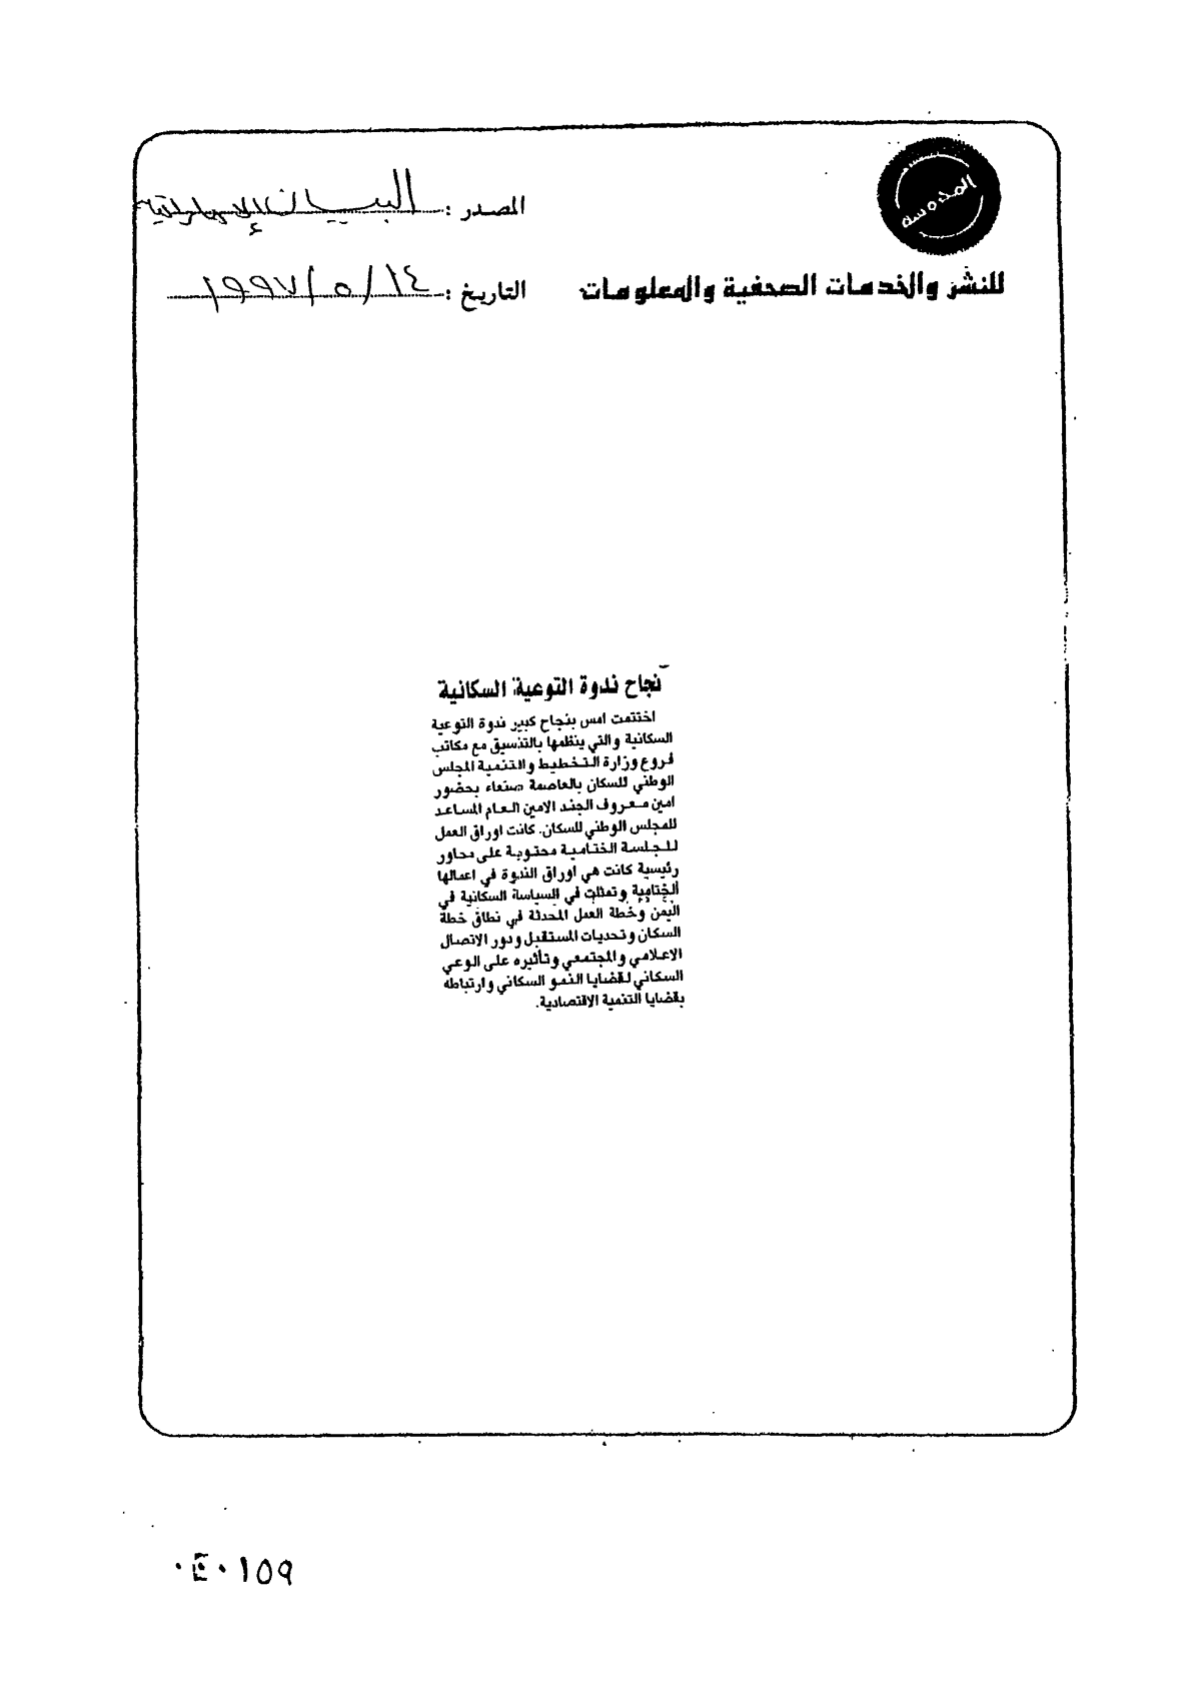 المصدر : البيان الإماراتية
للنشر والخدمات الصحفية والمعلومات
التاريخ : ١٤ / ٥ / ١٩٩٧
نجاح ندوة التوعية السكانية
اختتمت امس بنجاح كبير ندوة التوعية
السكانية والتي ينظمها بالتنسيق مع مكاتب
فروع وزارة التخطيط والتنمية المجلس
الوطني للسكان بالعاصمة صنعاء بحضور
امين معروف الجند الامين العام المساعد
للمجلس الوطني للسكان. كانت اوراق العمل
للجلسة الختامية محتوية على محاور
رئيسية كانت هي اوراق الندوة في اعمالها
الختامية وتمثلت في السياسة السكانية في
اليمن وخطة العمل المحدثة في نطاق خطة
السكان وتحديات المستقبل ودور الاتصال
الاعلامي والمجتمعي وتأثيره على الوعي
السكاني لقضايا النمو السكاني وارتباطه
بقضايا التنمية الاقتصادية.